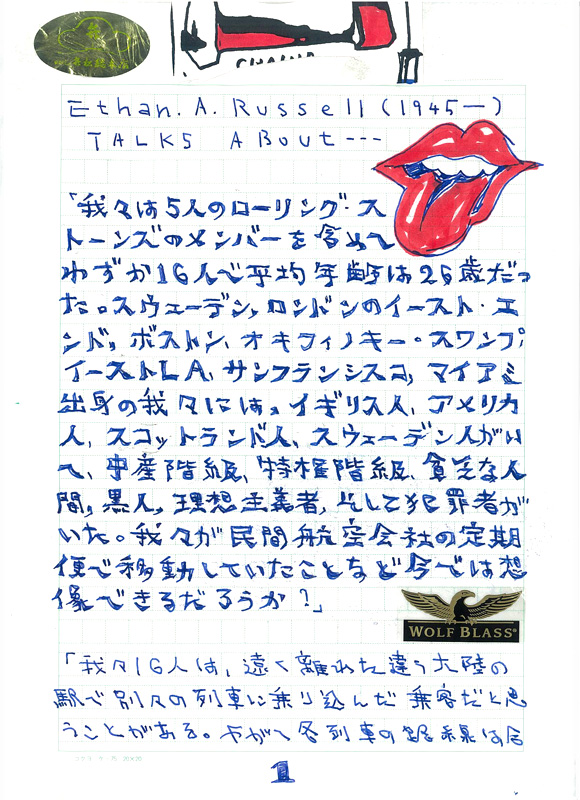 Ethan. A. Russell (1945—)
TALKS ABOUT---
「我々は5人のローリング・ス
トーンズのメンバーを含めて
わずか16人で平均年齢は26歳だっ
た。スウェーデン、ロンドンのイースト・エ
ンド、ボストン、オキフィノキー・スワンプ、
イーストLA、サンフランシスコ、マイアミ
出身の我々には、イギリス人、アメリカ
人、スコットランド人、スウェーデン人がい
て、中産階級、特権階級、貧乏な人
間、黒人、理想主義者、そして犯罪者が
いた。我々が民間航空会社の定期
便で移動していたことなど今では想
像できるだろうか?」
WOLF BLASS®
「我々16人は、遠く離れた違う大陸の
駅で別々の列車に乗り込んだ乗客だと思
うことがある。やがて各列車の路線は合
1